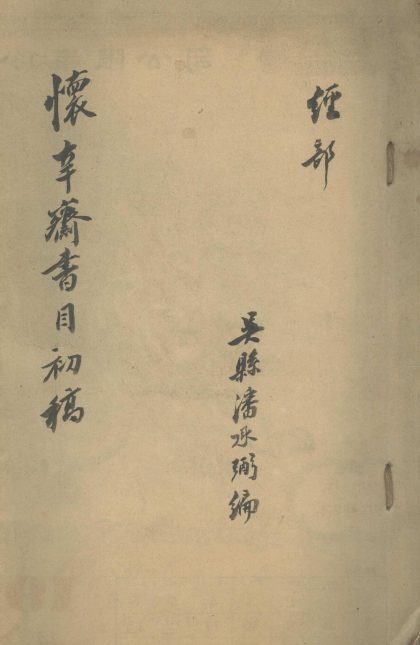 經部
吳縣潘承弼編
懷辛齋書目初稿